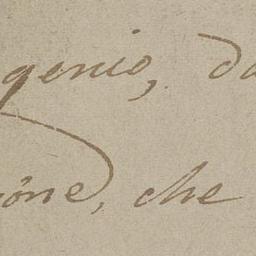 genio, da
ône, che